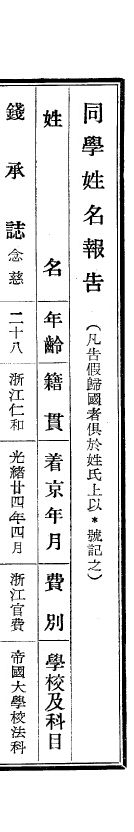 同學姓名報告(凡告假歸國者俱於姓氏上以*號記之)
姓名 年齡 籍貫 着京年月 費別 學校及科目
錢承誌念慈 二十八 浙江仁和 光緒廿四年四月 浙江官費 帝國大學校法科